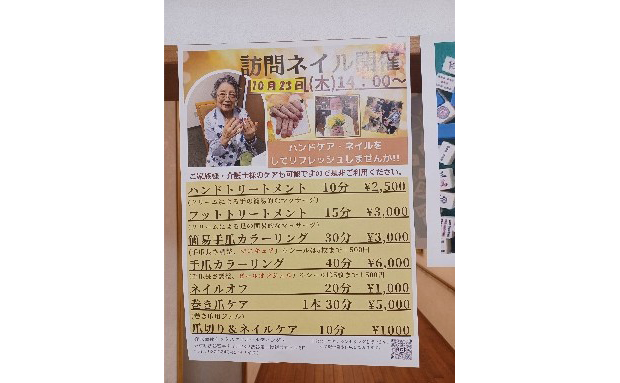 訪問ネイル開催
10月23日(木)14:00～
ハンドケア・ネイルを
してリフレッシュしませんか!!
ご家族様・介護士様のケアも可能ですので是非ご利用ください。
ハンドトリートメント 10分 ¥2,500
(クリームによる手の簡易的なマッサージ)
フットトリートメント 15分 ¥3,000
(クリームによる足の簡易的なマッサージ)
簡易手爪カラーリング 30分 ¥3,000
手爪カラーリング 40分 ¥6,000
ネイルオフ 20分 ¥1,000
巻き爪ケア 1本 30分 ¥5,000
爪切り&ネイルケア 10分 ¥1000